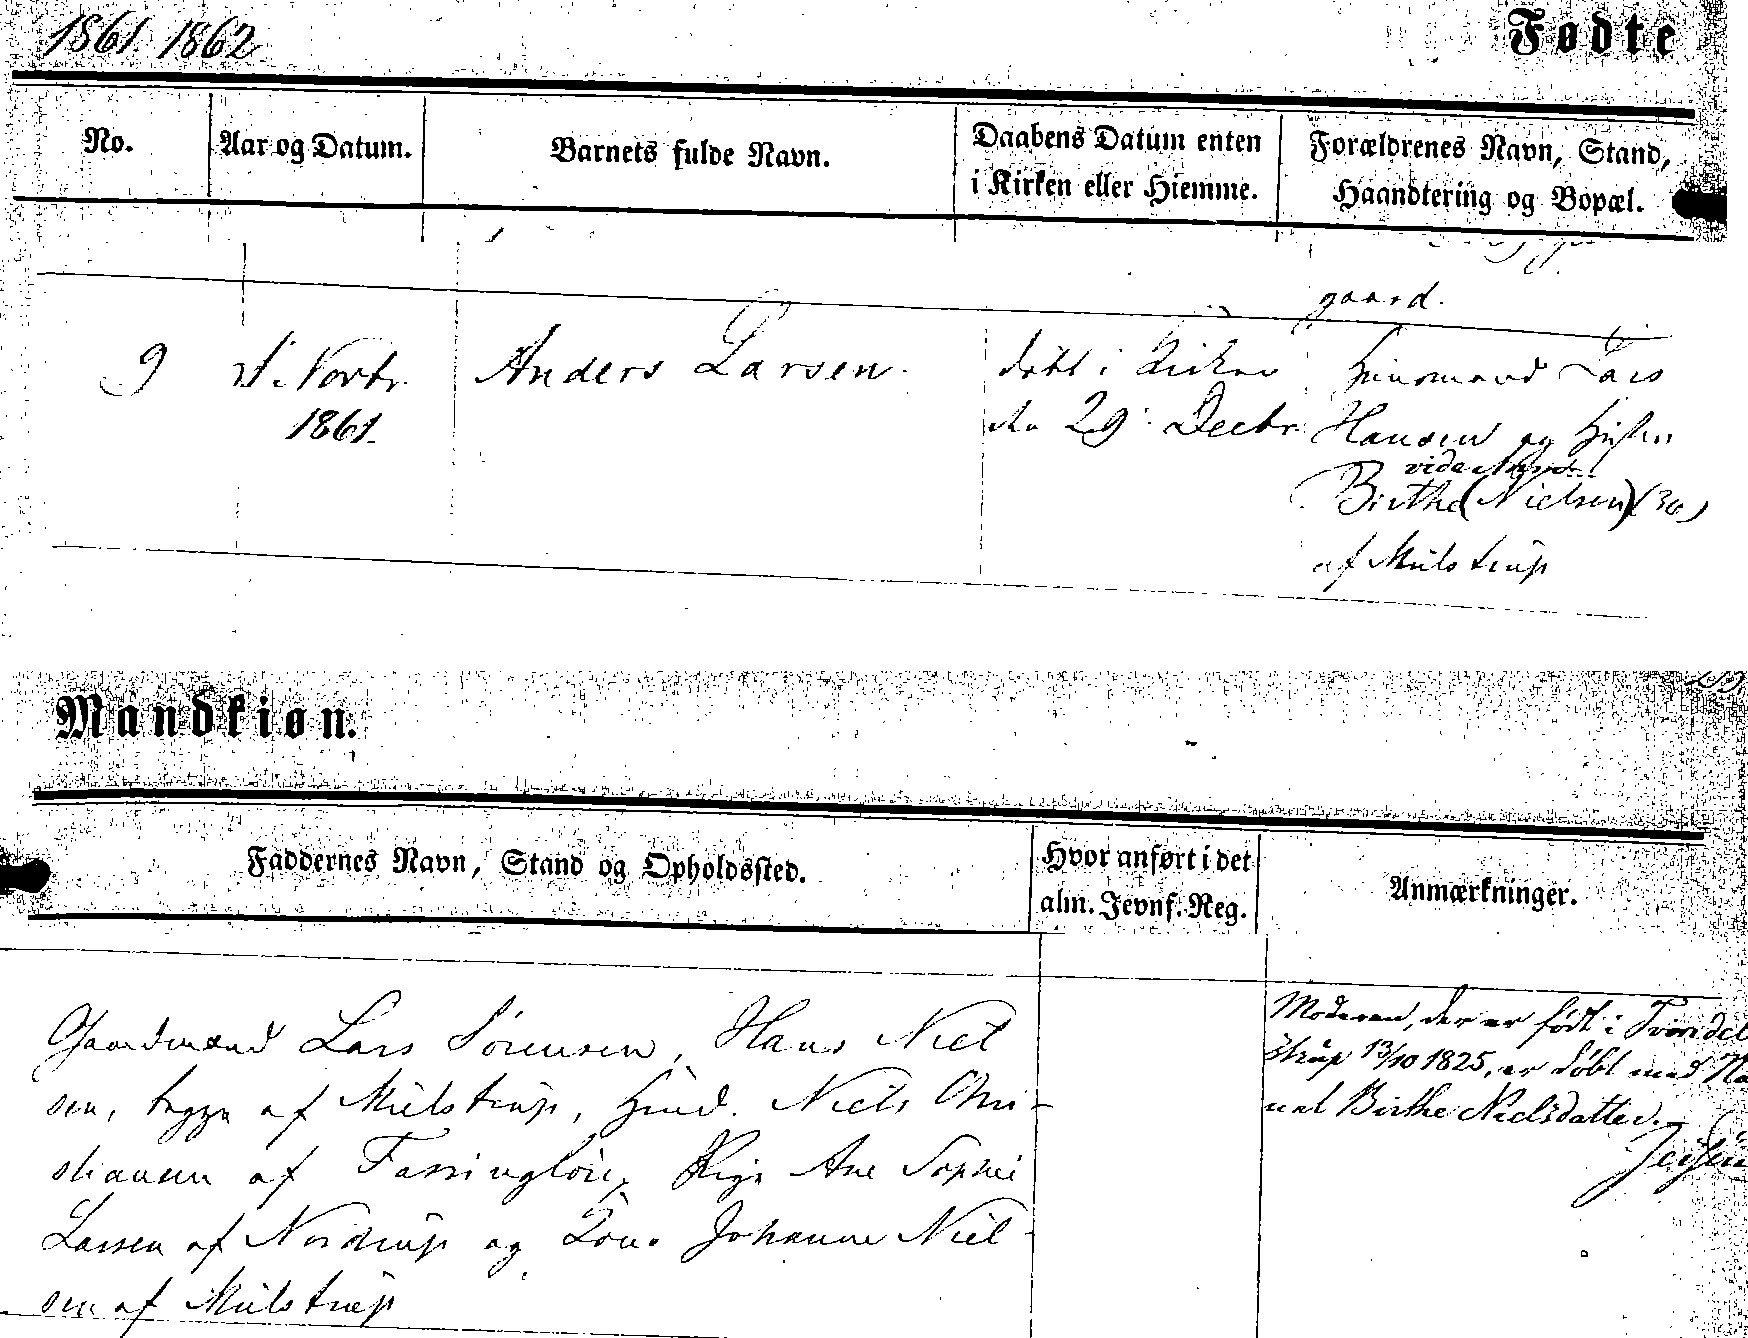 1861. 1862
Fødte
No.
Aar og Datum.
Barnets fulde Navn.
Daabens Datum enten
i Kirken eller Hiemme.
Forældrenes Navn, Stand,
Haandtering og Bopæl.
gaard.
9
Novbr.
1861.
Anders Larsen.
døbt i Kirken
den 29. Decbr
Huusmand Lars
Hansen og Hustru
vide Anm.
Birthe (Nielsen) (36)
af Mulstrup
Mandkiøn.
Faddernes Navn, Stand og Opholdssted.
Hvor anført i det
alm. Jevnf.-Reg.
Anmærkninger.
Gaardmænd Lars Sørensen, Hans Niel
sen, begge af Mulstrup, Huusmd. Niels Chri-
stiansen af Farringløse, Pige Ane Sophie
Larsen af Nordrup og Kone Johanne Niel-
sen af Mulstrup
Moderen, der er født i Tvindel
strup 13/10 1825, er døbt med Na
vnet Birthe Nielsdatter.